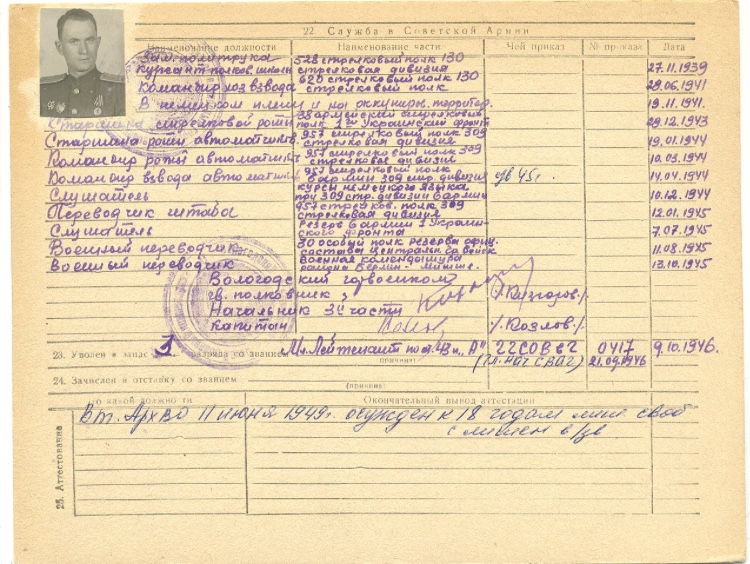 22. Служба в Советской Армии
Наименование должности Наименование части Чей приказ № приказа Дата
Зам. политрука 528 стрелковый полк 130
Курсант полков. школы стрелковая дивизия 27.11.1939
Командир хоз взвода 620 стрелковый полк 130 стрелков. полк 28.06.1941
В немецком плену и на оккупиров. территор. 19.11.1941
Старшина стрелковой роты 38 армейский стрелковый полк 1го Украинский фронта 29.12.1943
Старшина роты автоматчиков 957 стрелковый полк 309 стрелковая дивизия 19.01.1944
Командир роты автоматчик 957 стрелковый полк 309 стрелковой дивизии 10.03.1944
Командир взвода автоматчик 957 стрелковый полк 6 армии 309 стр. дивизия 14.04.1944
Слушатель курсы немецкого языка при 309 стр. дивизии 6 армии 10.12.1944
Переводчик штаба 957 стрелков. полк 309 стрелковая дивизия 12.01.1945
Слушатель Резерв 6 армии 1 Украинского фронта 7.07.1945
Военный переводчик 30 особый полк резерва офиц. состава централь. гр. войск 11.08.1945
Военный переводчик Военная комендатура района Берлин- 13.10.1945
Вологодский горвоенком
гв. полковник,
Начальник 3й части
капитан /.Козлов./
23. Уволен в запас 1 разряда со званием Мл. Лейтенант по ст. 43 п. "А" 0417 9.10.1946.
(причина) 21.09.1946
24. Зачислен в отставку со званием
(причина)
25. Аттестование
Окончательный вывод аттестации
11 июня 1949г. осужден к 18 годам лиш. своб
с лишен в/зв